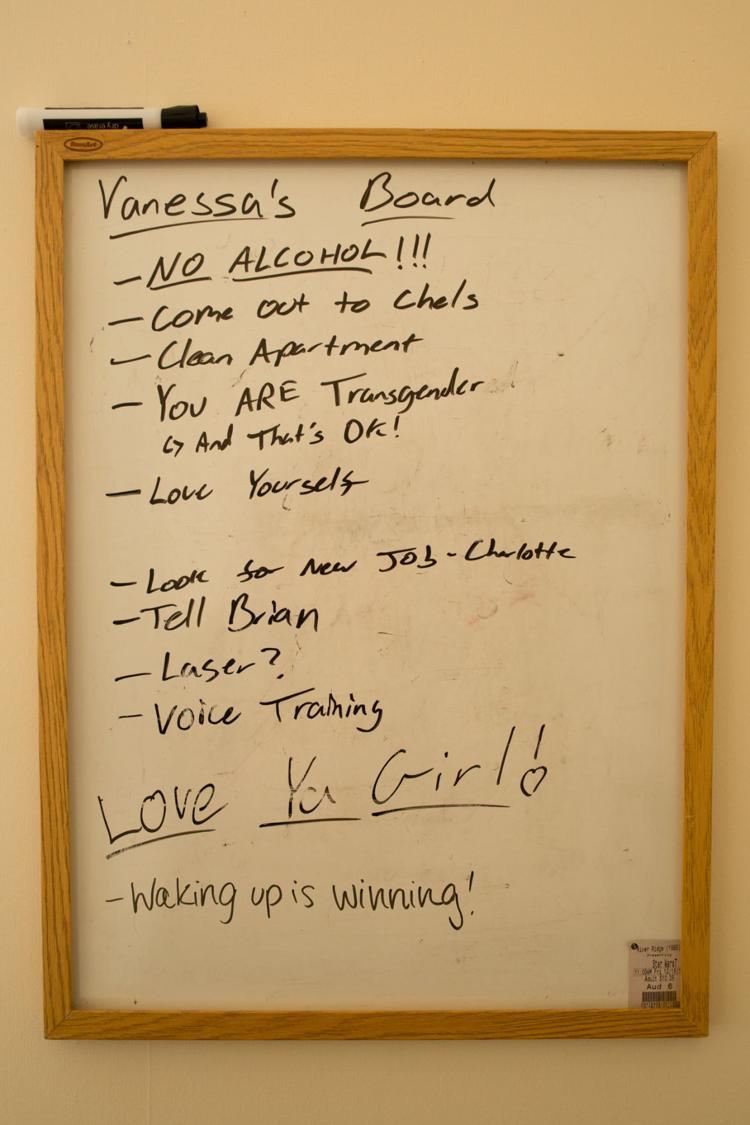 Vanessa's Board
- NO ALCOHOL!!!
- Come out to Chels
- Clean Apartment
- You ARE Transgender
↳ And That's OK!
- Love Yourself
- Look for New Job - Charlotte
- Tell Brian
- Laser?
- Voice Training
Love Ya Girl!
- Waking up is winning!
River Ridge
Presenting
Star Wars
Aud 6